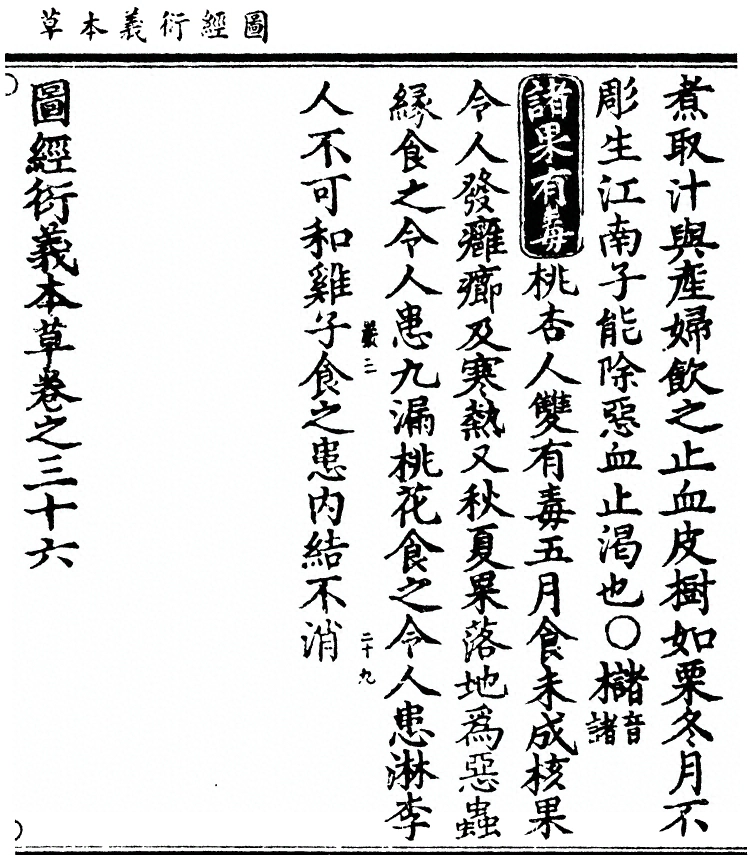 圖經衍義本草
煮取汁與產婦飲之止血皮樹如栗冬月不
彫生江南子能除惡血止渴也〇櫧音諸
諸果有毒桃杏人雙有毒五月食未成核果
令人發癰癤及寒熱又秋夏果落地為惡蟲
緣食之令人患九漏桃花食之令人患淋李
叢三 二十九
人不可和雞子食之患内結不消
圖經衍義本草卷之三十六